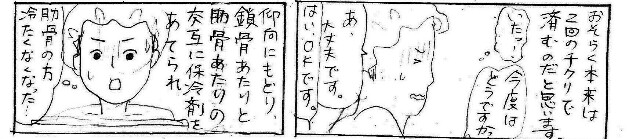 おそらく本来は
2回のチクリで
済むのだと思います
いたっ…
今度は
どうですか。
あ、
大丈夫です。
はい、OKです。
仰向にもどり、
鎖骨あたりと
肋骨あたりの
交互に保冷剤を
あてられ
肋骨の方
冷たくなくなった…